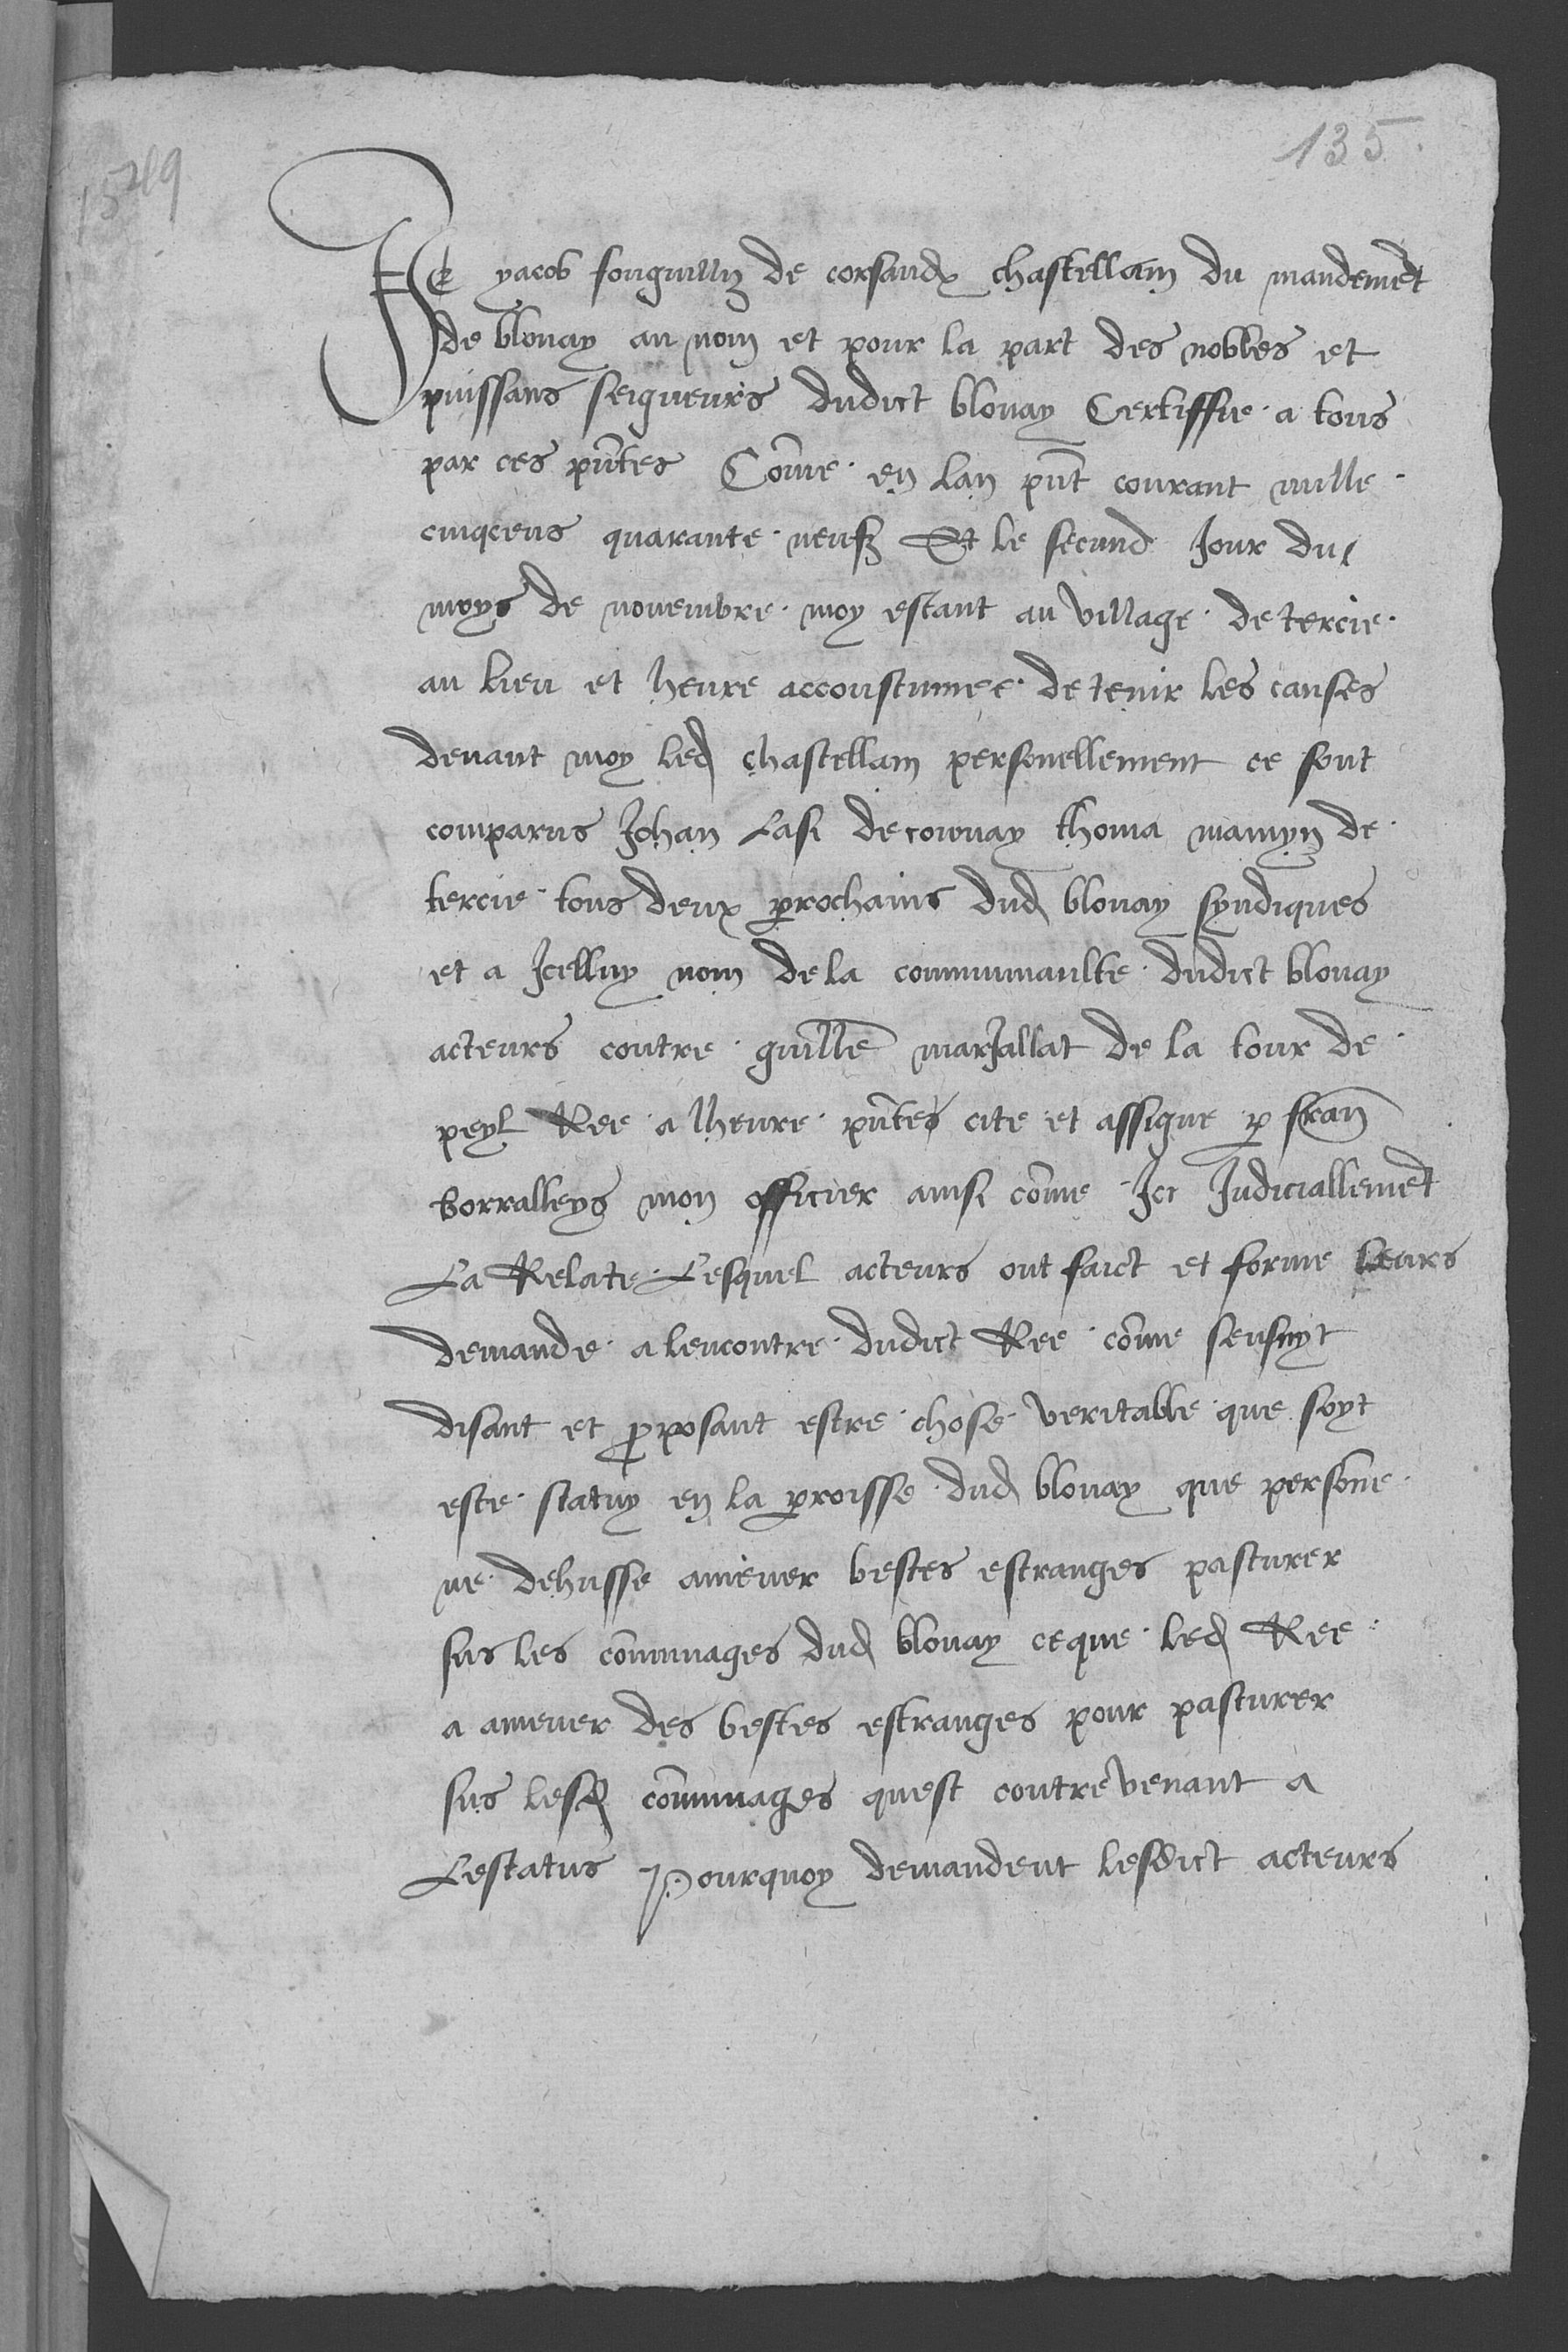 135.
1549
Je yacob fonguilliz de corsaudx chastellain du mandemet
de blonay au nom et pour la part des nobles et
puissans seigneurs dudict blonay Certiffie a tous
par ces pntes Come en lan pnt courant mille
cinqcens quarante neufz Et le secund Jour du
moys de novembre moy estant au village de tercie
au lieu et heure accoustumee de tenir les causes
devant moy led chastellain personellement ce sont
comparus Johan Lasi de cornay thoma mamyn de
tercie tous deux prochains dud blonay syndiques
et a Jcelluy nom de la communaulte dudict blonay
acteurs contre guille marJallat de la tour de
peyl Ree a lheure pntes cite et assigne p fran
borralleys mon officier ainsi come Jci Judiciallemet
La Relate Lesquel acteurs ont faict et forme leurs
demande a lencontre dudict Ree come sensuyt
disant et proposant estre chose veritable que soyt
este statuy en la proisse dud blonay que persone
ne dehusse amener bestes estranges pasturer
sus les comunages dud blonay ce que led Ree
a amener des bestes estranges pour pasturer
sus lesd comunages quest contrevenant a
Lestatus Pourquoy demandent lesdict acteurs